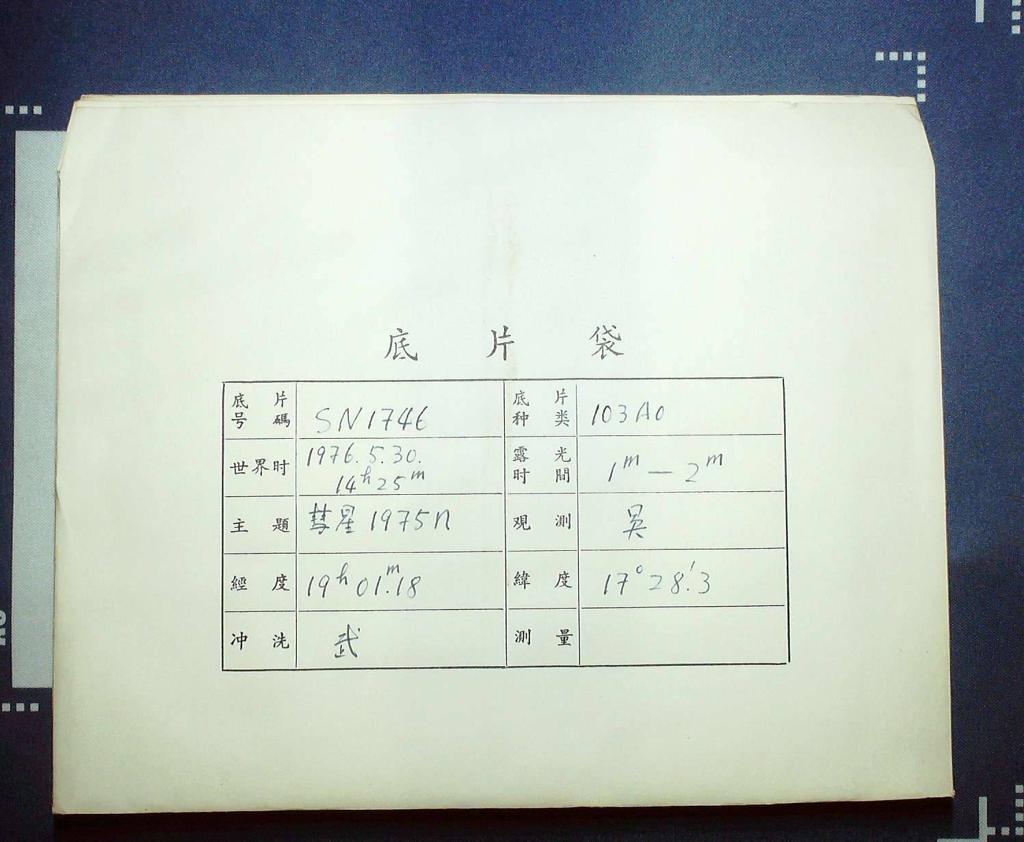 底 片 袋
底 片
号 碼
SN1746
底 片
种 类
103AO
世界时
1976.5.30.
14ʰ25ᵐ
露 光
时 間
1ᵐ—2ᵐ
主 題
彗星1975n
观 測
吴
經 度
19ʰ01ᵐ.18
緯 度
17°28'.3
冲 洗
武
測 量